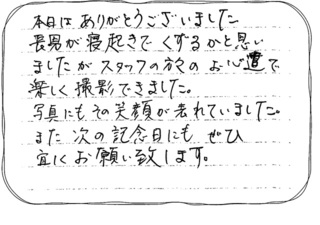 本日は ありがとうございました
長男が寝起きで くずるかと思い
ましたが スタッフの方の お心遣で
楽しく 撮影できました。
写真にも その笑顔が 表れていました。
また 次の記念日にも ぜひ
宜しくお願い致します。